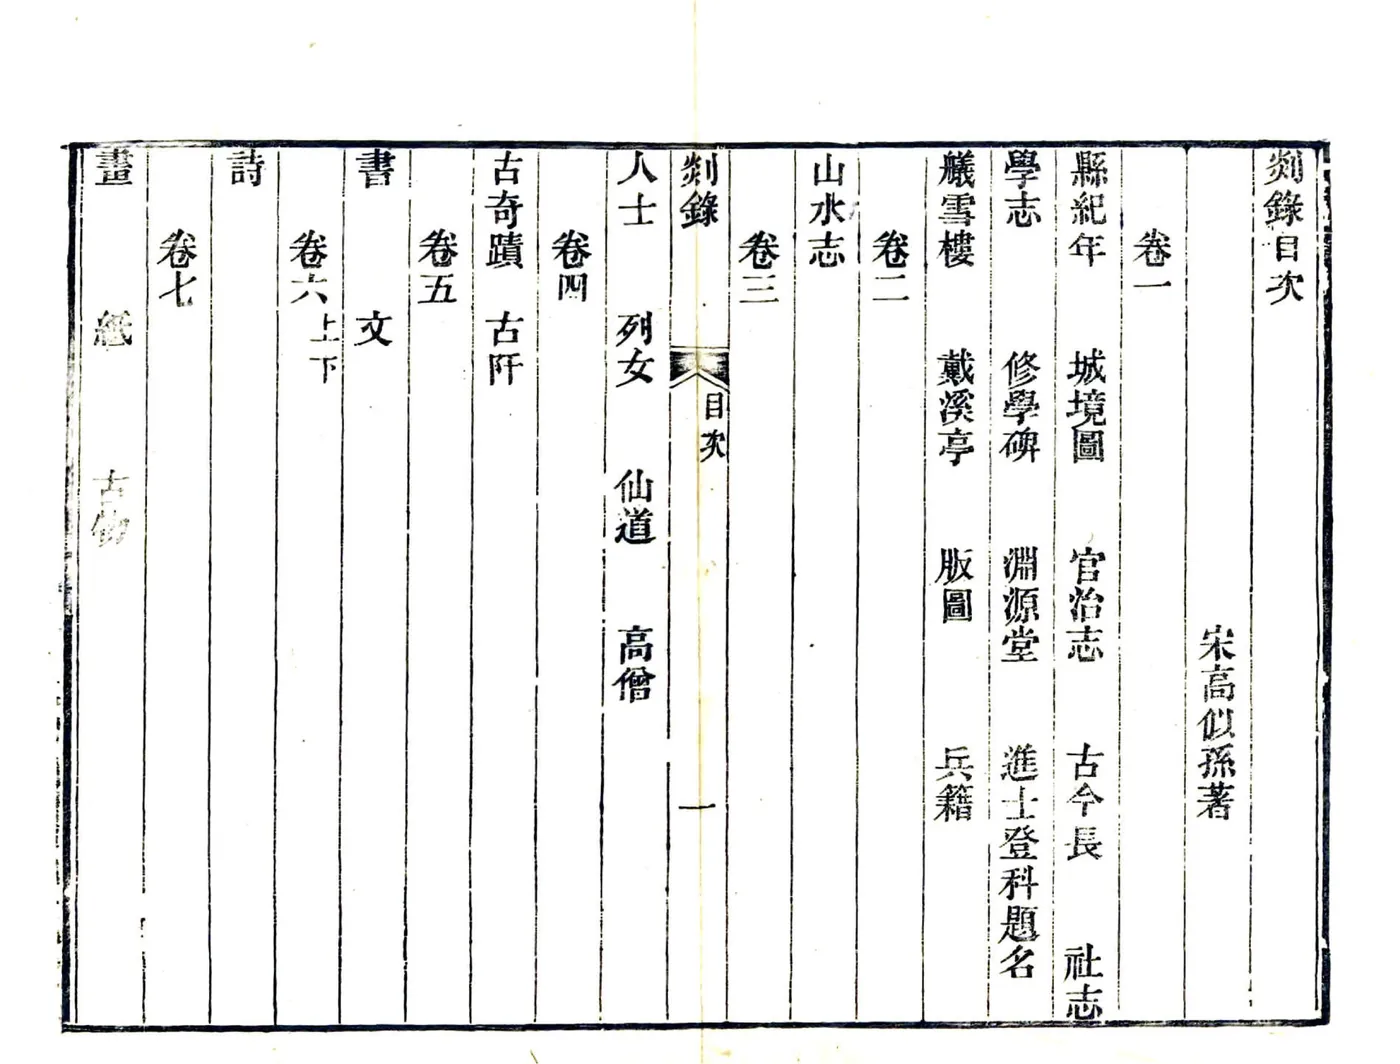 剡錄目次
宋高似孫著
卷一
縣紀年 城境圖 官治志 古今長 社志
學志 修學碑 淵源堂 進士登科題名
艤雪樓 戴溪亭 版圖 兵籍
卷二
山水志
卷三
剡錄 目次 一
人士 列女 仙道 高僧
卷四
古奇蹟 古阡
卷五
書 文
卷六上下
詩
卷七
畫 紙 古物